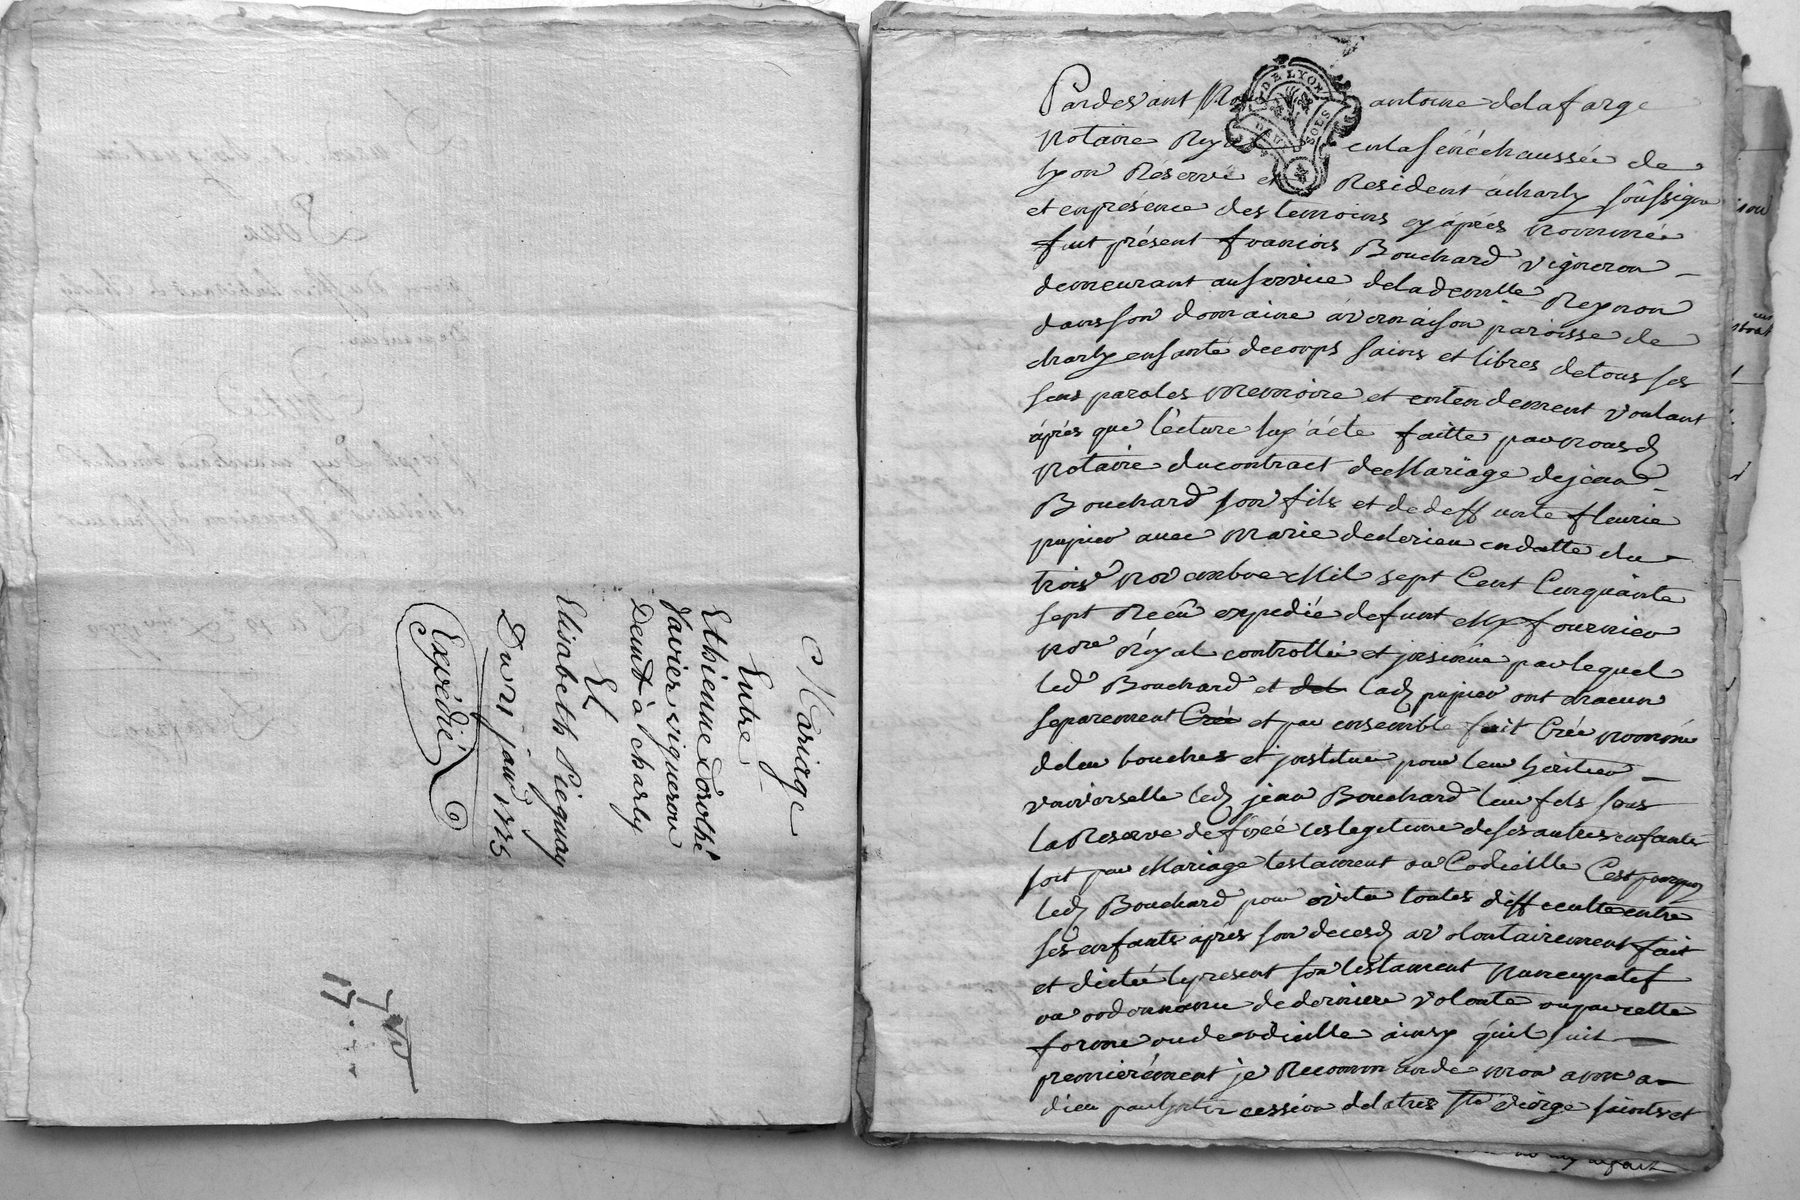 Mariage
Entre
Ethienne Dorolhé
Xavier vigneron
Demt à charly
Et
Elisabeth Pieguay
Du 21 janr 1775
Expédié
17
G DE LYON
DEUX SOLS
Pardevant antoine delafarge
Notaire Royal en la sénéchaussée de
Lyon Réservé et Resident à charly soussigné
et en présence des temoins cy après nommé
fut présent francois Bouchard vigneron
demeurant au service de lademlle Reynon
dans son domaine à vernaison paroisse de
charly en santé de corps sains et libres de tous ses
sens paroles memoire et entendement voulant
après que lecture luy a été faitte par nousd
Notaire du contract de Mariage de jean
Bouchard son fils et de deffunte fleurie
pupier avec marie dederieu en datte du
trois novembre Mil sept Cent Cinquante
sept Recu expedié defunt Me fournier
nore Royal controllé et jnsinué par lequel
led Bouchard et del lad pupier ont chacun
separement Créé et par ensemble fait Créé nommé
de leu bouches et jnstitue pour leu héritier
universelle led jean Bouchard leu fils sous
la Reserve de fixée les legitime de ses autres enfants
soit par Mariage testament ou Codicille C'est pourquoy
led Bouchard pour evité toutes difficulté entre
ses enfants après son decesd a volontairement fait
et dicté le present son testament Nuncupatif
ou ordonnance de derniere volonté ou par cette
forme ou de codicille ainsy qu'il suit
premièrement je Recommande mon ame a
dieu par l'intercession de la tres ste vierge saints et